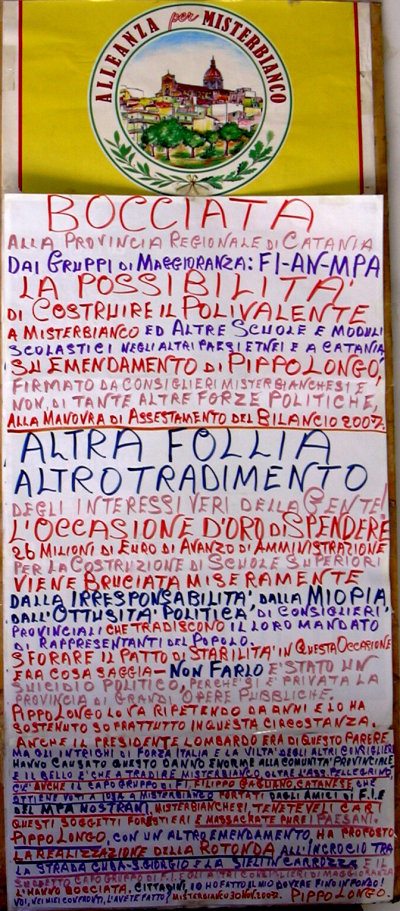 ALLEANZA per MISTERBIANCO
BOCCIATA
ALLA PROVINCIA REGIONALE DI CATANIA
DAI GRUPPI DI MAGGIORANZA: FI-AN-MPA
LA POSSIBILITA'
DI COSTRUIRE IL POLIVALENTE
A MISTERBIANCO ED ALTRE SCUOLE E MODULI
SCOLASTICI NEGLI ALTRI PAESI ETNEI E A CATANIA
SU EMENDAMENTO DI PIPPO LONGO,
FIRMATO DA CONSIGLIERI MISTERBIANCHESI E
NON, DI TANTE ALTRE FORZE POLITICHE,
ALLA MANOVRA DI ASSESTAMENTO DEL BILANCIO 2007.
ALTRA FOLLIA
ALTRO TRADIMENTO
DEGLI INTERESSI VERI DELLA GENTE!
L'OCCASIONE D'ORO DI SPENDERE
26 MILIONI DI EURO DI AVANZO DI AMMINISTRAZIONE
PER LA COSTRUZIONE DI SCUOLE SUPERIORI
VIENE BRUCIATA MISERAMENTE
DALLA IRRESPONSABILITA', DALLA MIOPIA
DALL'OTTUSITA' POLITICA DI CONSIGLIERI
PROVINCIALI CHE TRADISCONO IL LORO MANDATO
DI RAPPRESENTANTI DEL POPOLO.
SFORARE IL PATTO DI STABILITA' IN QUESTA OCCASIONE
ERA COSA SAGGIA - NON FARLO E' STATO UN
SUICIDIO POLITICO, PERCHE' SI E' PRIVATA LA
PROVINCIA DI GRANDI OPERE PUBBLICHE.
PIPPO LONGO LO VA RIPETENDO DA ANNI E LO HA
SOSTENUTO SOPRATTUTTO IN QUESTA CIRCOSTANZA.
ANCHE IL PRESIDENTE LOMBARDO ERA DI QUESTO PARERE
MA GLI INTRIGHI DI FORZA ITALIA E LA VILTA' DEGLI ALTRI CONSIGLIERI
HANNO CAUSATO QUESTO DANNO ENORME ALLA COMUNITA' PROVINCIALE
E IL BELLO E' CHE A TRADIRE MISTERBIANCO, OLTRE L'ASS. PELLEGRINO,
C'E' ANCHE IL CAPOGRUPPO DI F.I. FILIPPO GAGLIANO, CATANESE, CHE
OTTIENE VOTI A IOSA A MISTERBIANCO PORTATO DAGLI AMICI DI F.I E
DEL MPA NOSTRANI. MISTERBIANCHESI, TENETEVELI CARI
QUESTI SOGGETTI FORESTIERI E MASSACRATE PURE I PAESANI.
PIPPO LONGO, CON UN ALTRO EMENDAMENTO, HA PROPOSTO
LA REALIZZAZIONE DELLA ROTONDA ALL'INCROCIO TRA
LA STRADA CUBA-S.GIORGIO E LA SIELTI IN CARROZZA E IL
SUDDETTO CAPOGRUPPO DI F.I. E GLI ALTRI CONSIGLIERI DI MAGGIORANZA
L'HANNO BOCCIATA. CITTADINI, IO HO FATTO IL MIO DOVERE FINO IN FONDO!
VOI, NEI MIEI CONFRONTI, L'AVETE FATTO? MISTERBIANCO 30 NOV. 2007. PIPPO LONGO.